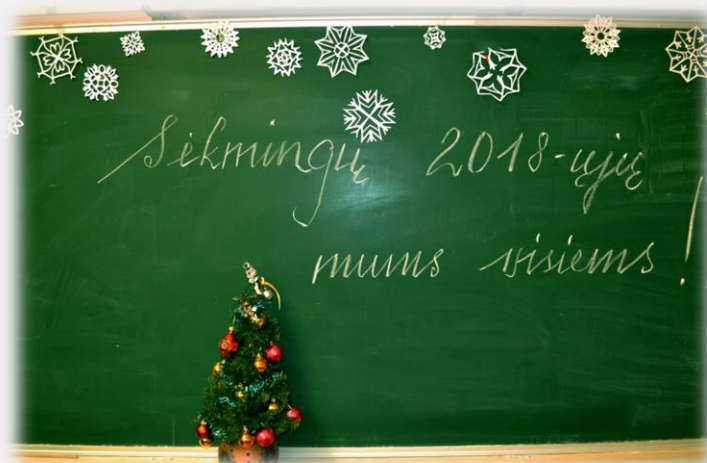 Sėkmingų 2018-ųjų
mums visiems!